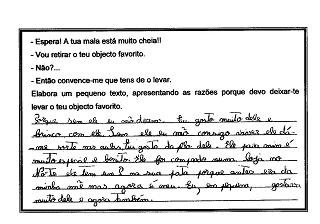 - Espera! A tua mala está muito cheia!!
- Vou retirar o teu objecto favorito.
- Não?...
- Então convence-me que tens de o levar.
Elabora um pequeno texto, apresentando as razões porque devo deixar-te
levar o teu objecto favorito.
Porque sem ele eu não durmo. Eu gosto muito dele e
brinco com ele. Sem ele eu não consigo viver ele dá-
me sorte nos
gosto do pêlo dele. Ele para mim é
muito especial e bonito. Ele foi comprado numa loja no
Norte ele tem um na sua pata porque antes era da
minha mãe mas agora é meu. Eu, em pequena, gostava
muito dele e agora também.